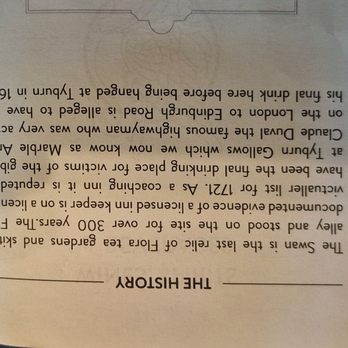 THE HISTORY
The Swan is the last relic of Flora tea gardens and skit
alley and stood on the site for over 300 years.The F
documented evidence of a licensed inn keeper is on a licen
victualler list for 1721. As a coaching inn it is reputed
have been the final drinking place for victims of the gib
at Tyburn Gallows which we now know as Marble Ar
Claude Duval the famous highwayman who was very ac
on the London to Edinburgh Road is alleged to have
his final drink here before being hanged at Tyburn in 16